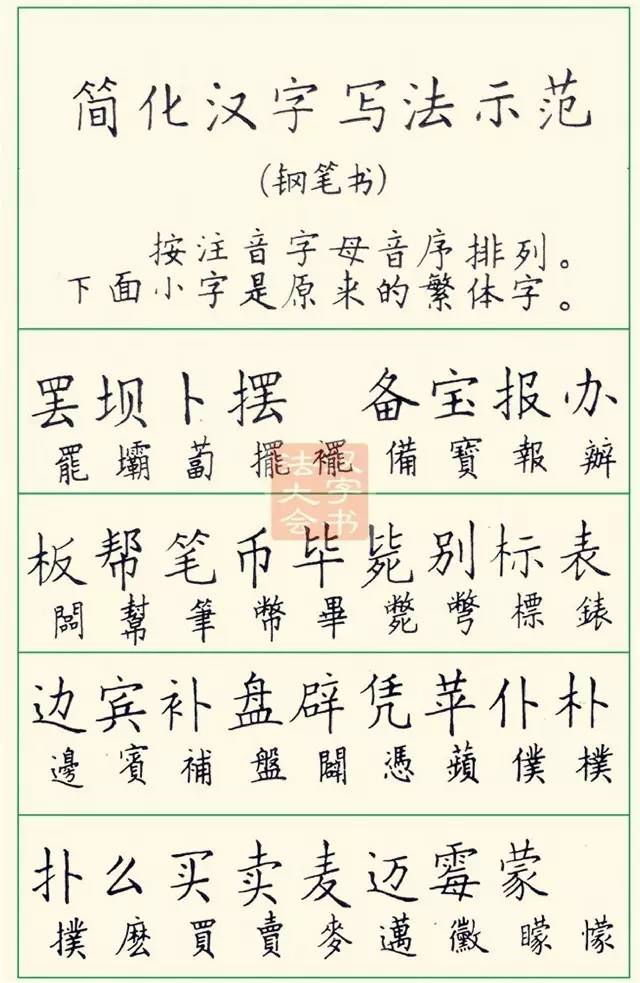 简化汉字写法示范
(钢笔书)
按注音字母音序排列。
下面小字是原来的繁体字。
罢坝卜摆 备宝报办
罷壩蔔擺襬備寶報辦
板帮笔币毕毙别标表
闆幫筆幣畢斃彆標錶
边宾补盘辟凭苹仆朴
邊賓補盤闢憑蘋僕樸
扑么买卖麦迈霉蒙
撲麽買賣麥邁黴矇懞
汉字书
法大会